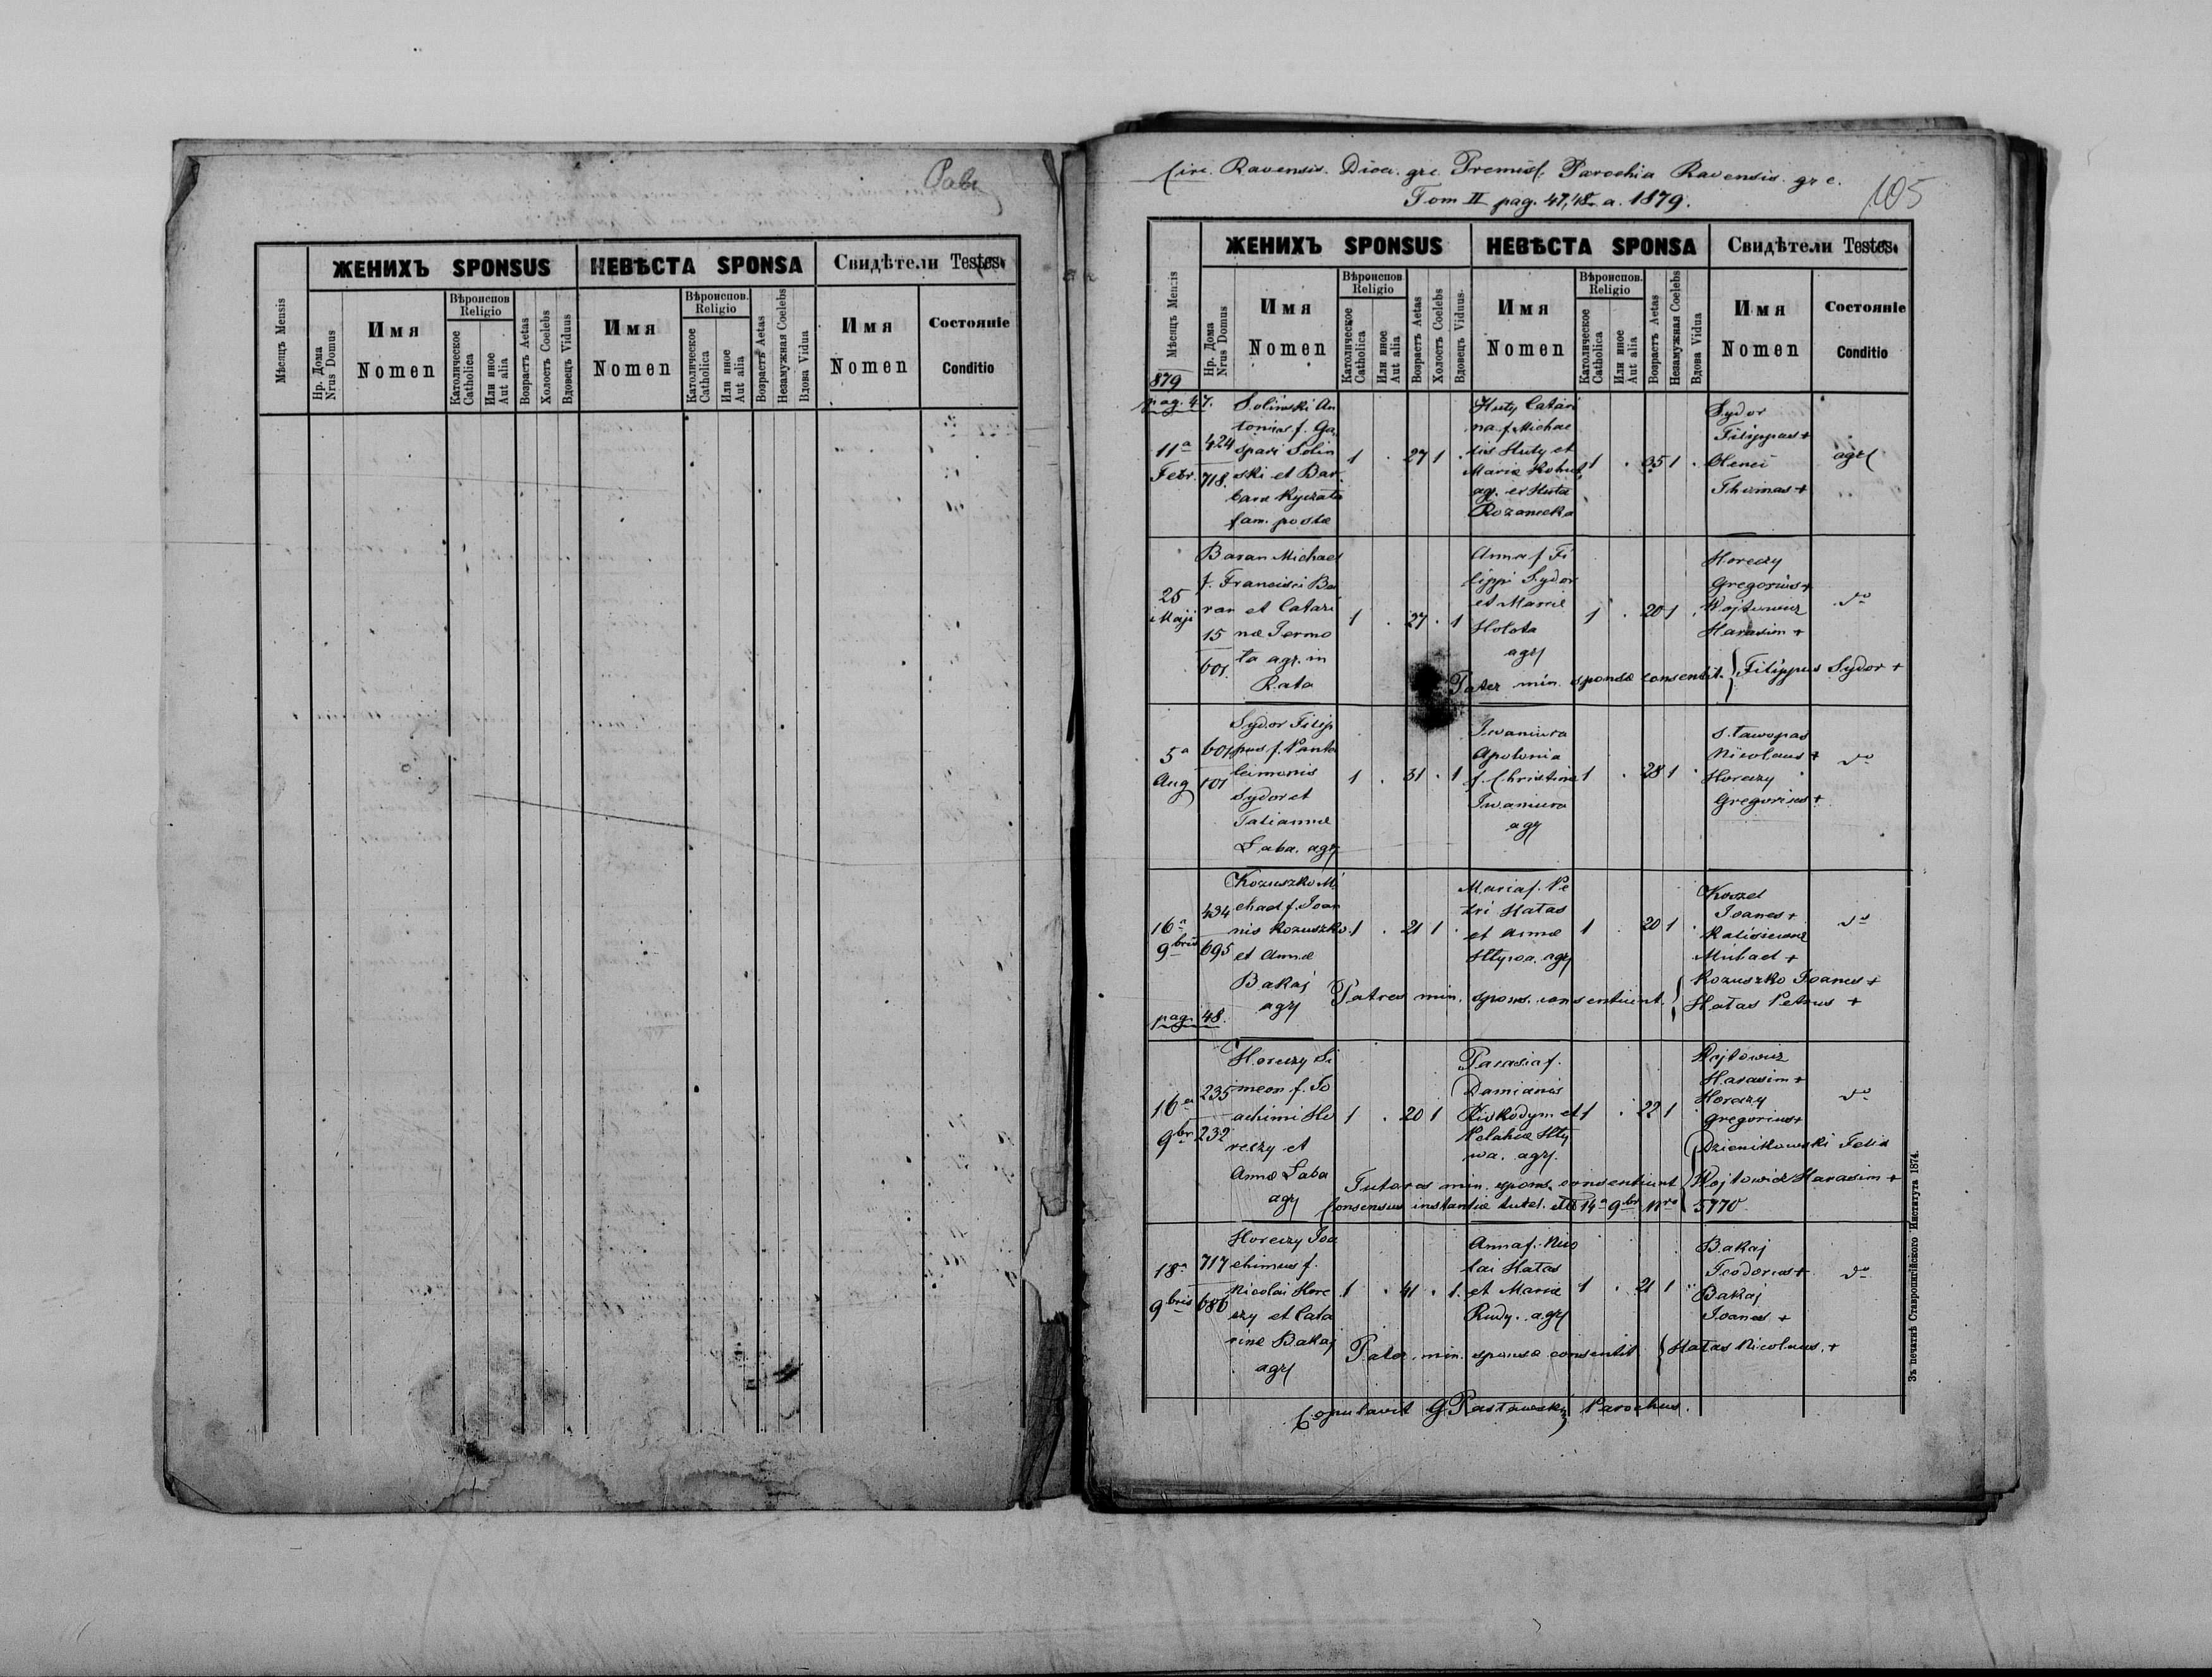 Pabi
ЖЕНИХЪ SPONSUS
НЕВѢСТА SPONSA
Свидѣтели Testes.
Мѣсяцъ Mensis
Нр. Дома
Nrus Domus
Имя
Nomen
Вѣроиспов
Religio
Католическое
Catholica
Или иное
Aut alia
Возрастъ Aetas
Холостъ Coelebs
Вдовецъ Viduus
Имя
Nomen
Вѣроиспов.
Religio
Католическое
Catholica
Или иное
Aut alia
Возрастъ Aetas
Незамужная Coelebs
Вдова Vidua
Имя
Nomen
Состояніе
Conditio
Circ. Ravensis. Dioec. gr.c. Premisl. Parochia Ravensis. gr c.
Tom II pag. 47, 48. a. 1879.
105
ЖЕНИХЪ SPONSUS
НЕВѢСТА SPONSA
Свидѣтели Testes.
Мѣсяцъ Mensis
Нр. Дома
Nrus Domus
Имя
Nomen
Вѣроиспов.
Religio
Католическое
Catholica
Или иное
Aut alia
Возрастъ Aetas
Холостъ Coelebs
Вдовецъ Viduus.
Имя
Nomen
Вѣроиспов.
Religio
Католическое
Catholica
Или иное
Aut alia
Возрастъ Aetas
Незамужная Coelebs
Вдова Vidua
Имя
Nomen
Состояніе
Conditio
879
pag. 47.
11a
Febr.
424
718.
Solinski An
tonius f. Ga
spari Solin
ski et Bar
barae
fam. postae
1 . 27 1 .
Huty Catari
na f. Michae
lis Huty et
Mariae Kohut
agr. ex Huta
Rozaniecka
1 . 35 1 .
Sydor
Filippus +
Olenei
Thomas +
agr
25
Maji
15
601.
Baran Michael
f. Francisci Ba
ran et Catari
nae Jermo
ta agr. in
Rata
1 . 27 . 1
Anna f. Fi
lippi Sydor
et Mariae
Holota
agr
1 . 20 1 .
Horeczy
Gregorius +
Wojtowicz
Harasim +
do
Pater min. sponsae consentit. } Filippus Sydor +
5a
Aug
601
101
Sydor Filip
pus f. Pante
leimonis
Sydor et
Tatiannae
Laba. agr
1 . 31 . 1
Iwaniura
Apolonia
f. Christinae
Iwaniura
agr
1 . 28 1 .
Stawopas
Nicolaus +
Horeczy
Gregorius +
do
16a
9bris
434
695
Kozuszko Mi
chael f. Ioan
nis Kozuszko
et Annae
Bakaj
agr
1 . 21 1 .
Maria f. Pe
tri Hatas
et Annae
Hlywa. agr
1 . 20 1 .
Koszel
Joanes +
Kalisiewicz
Michael +
do
Patres min. spons. consentiunt. { Kozuszko Joanes +
Hatas Petrus +
pag. 48.
16a
9br
235
232
Horeczy Si
meon f. Jo
achimi Ho
reczy et
Annae Laba
agr
1 . 20 1
Parasia f.
Damianis
et
Pelahiae Hly
wa. agr.
1 . 22 1 .
Wojtowicz
Harasim +
Horeczy
Gregorius +
do
Tutores min. spons. consentiunt { Felix
Wojtowicz Harasim +
Consensus instantiae tutel. 14a 9br Nro 5770
18a
9bris
717
686
Horeczy Joa
chimus f.
Nicolai Hore
czy et Cata
rinae Bakaj
agr
1 . 41 . 1.
Anna f. Nico
lai Hatas
et Mariae
Rudy. agr
1 . 21 1 .
Bakaj
Teodorus +
Bakaj
Joanes +
do
Pater min. sponsae consentit { Hatas Nicolaus. +
Copulavit G Parochus.
Зъ печатнѣ Ставропигійского Института 1874.